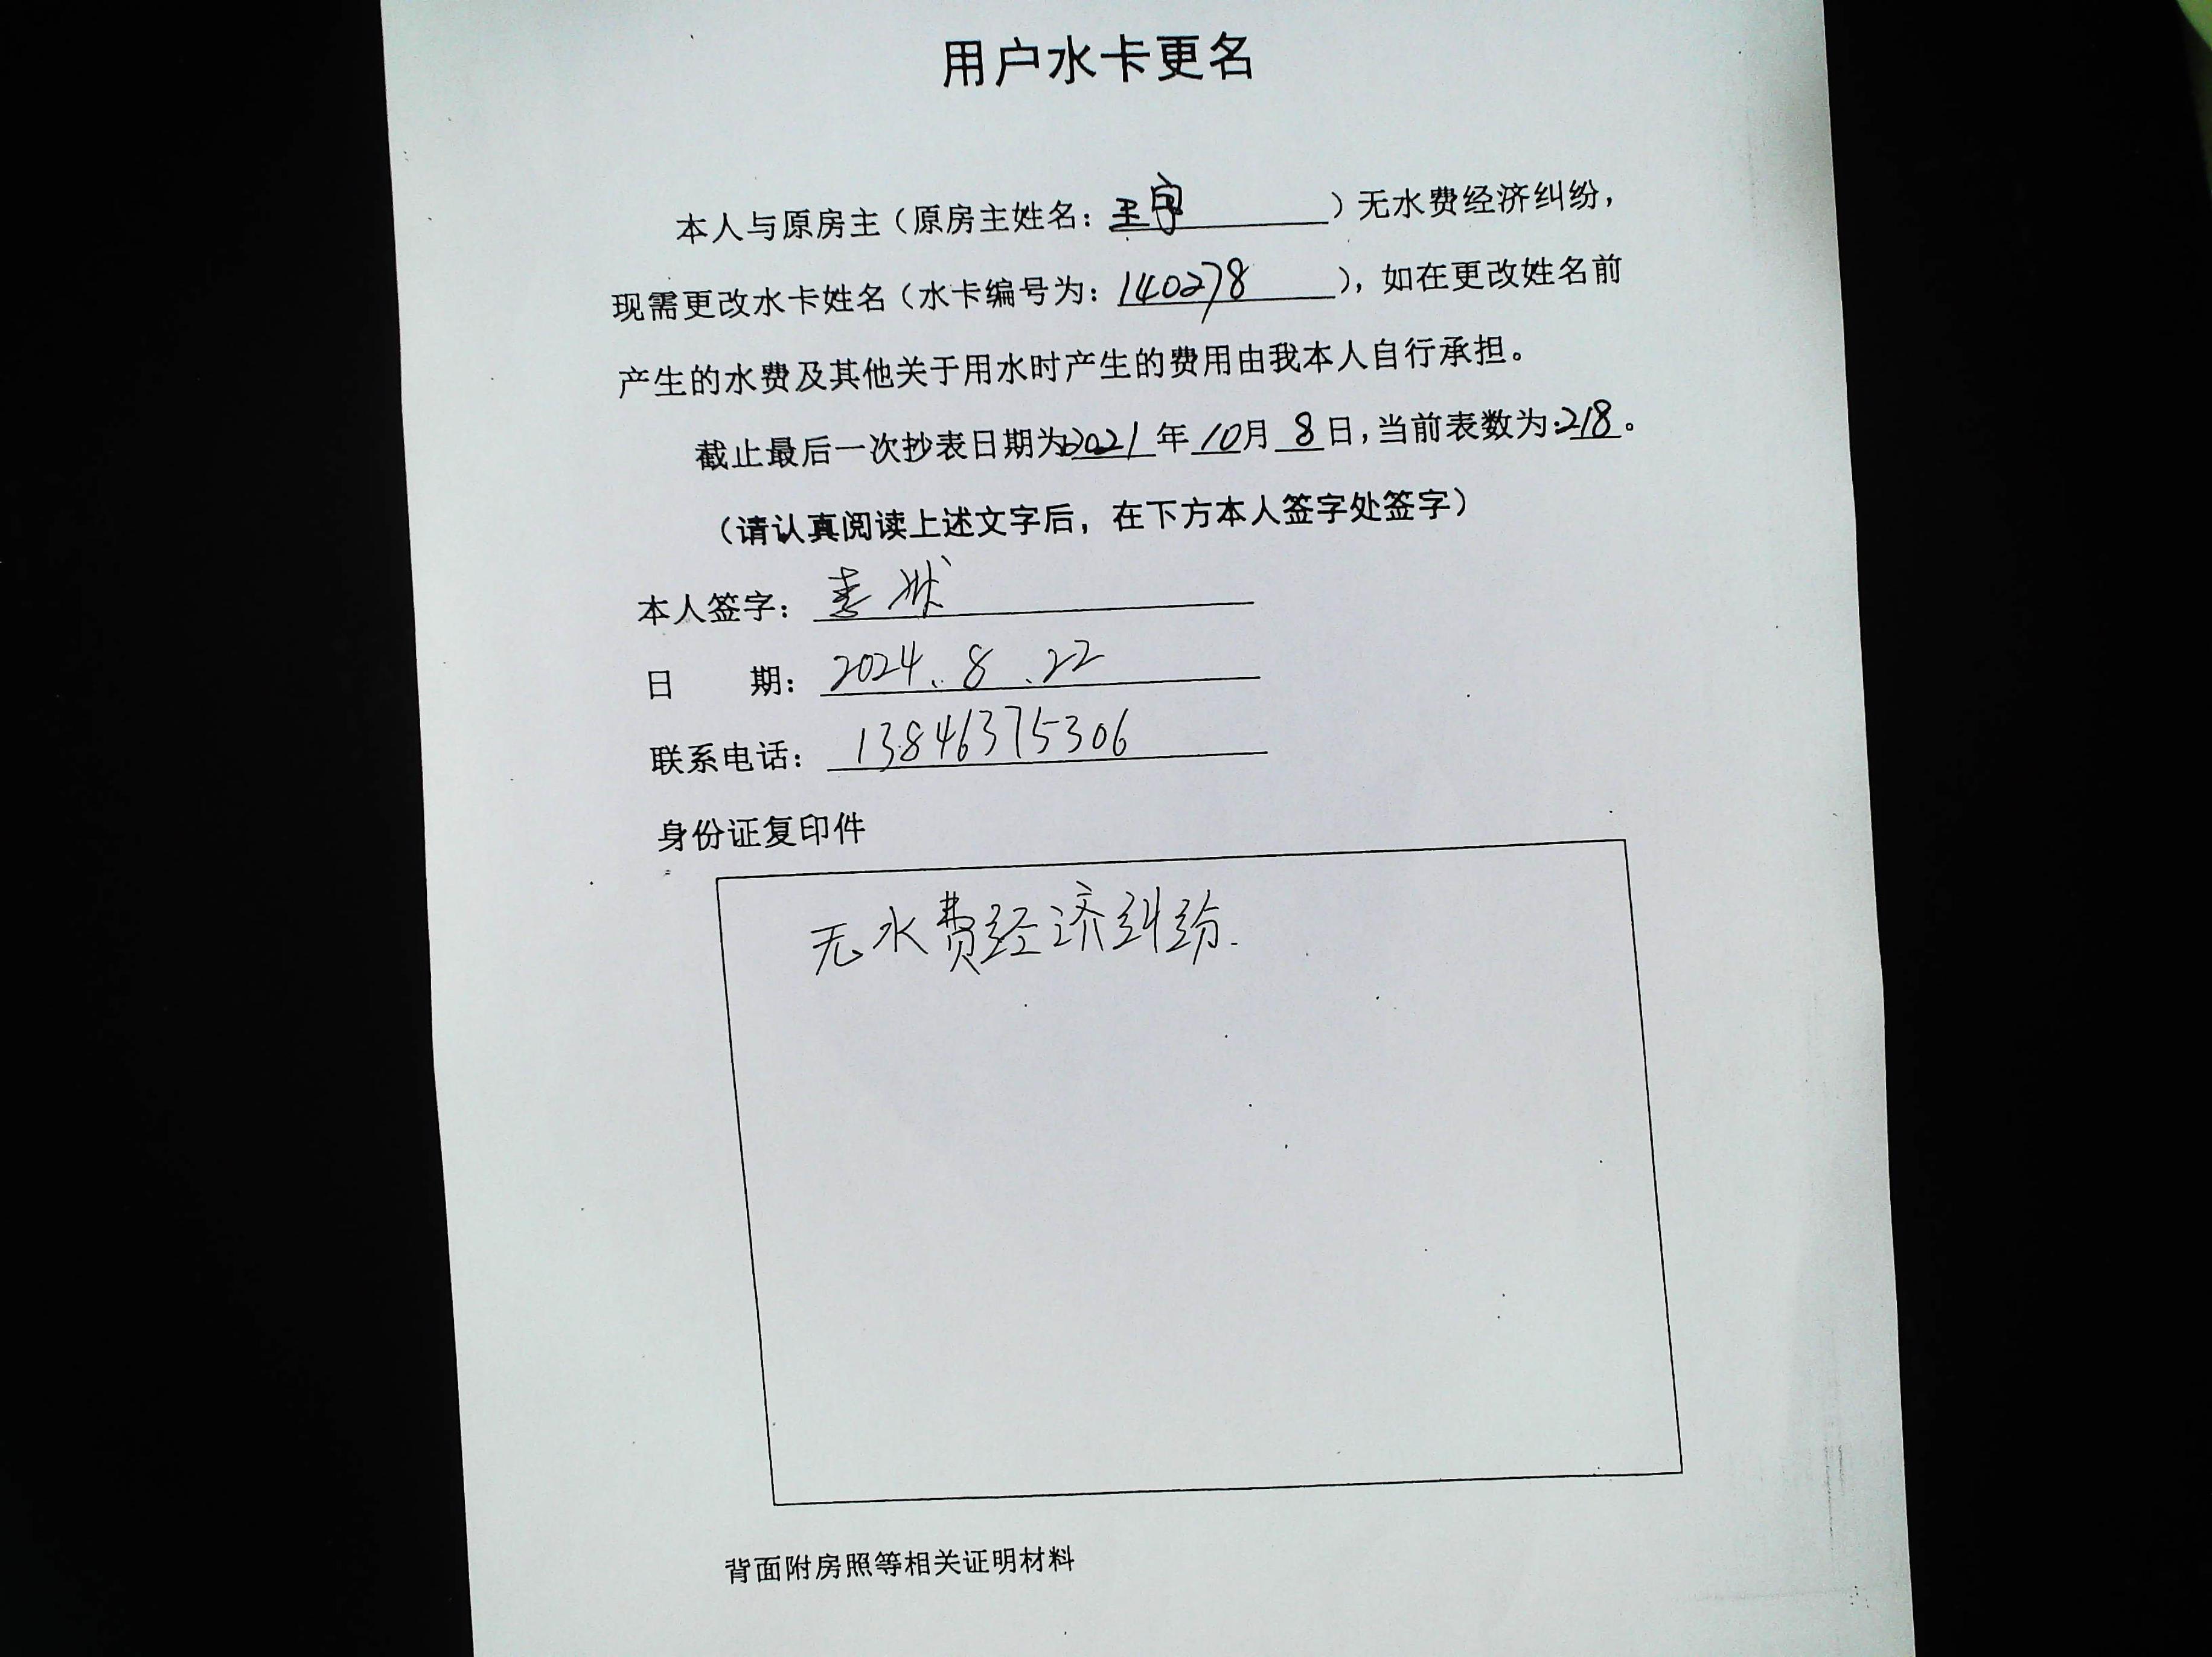 用户水卡更名
本人与原房主（原房主姓名：王宇）无水费经济纠纷，
现需更改水卡姓名（水卡编号为：140278），如在更改姓名前
产生的水费及其他关于用水时产生的费用由我本人自行承担。
截止最后一次抄表日期为2021年10月8日，当前表数为:218。
（请认真阅读上述文字后，在下方本人签字处签字）
本人签字：
日 期：2024.8.22
联系电话：13846375306
身份证复印件
无水费经济纠纷.
背面附房照等相关证明材料